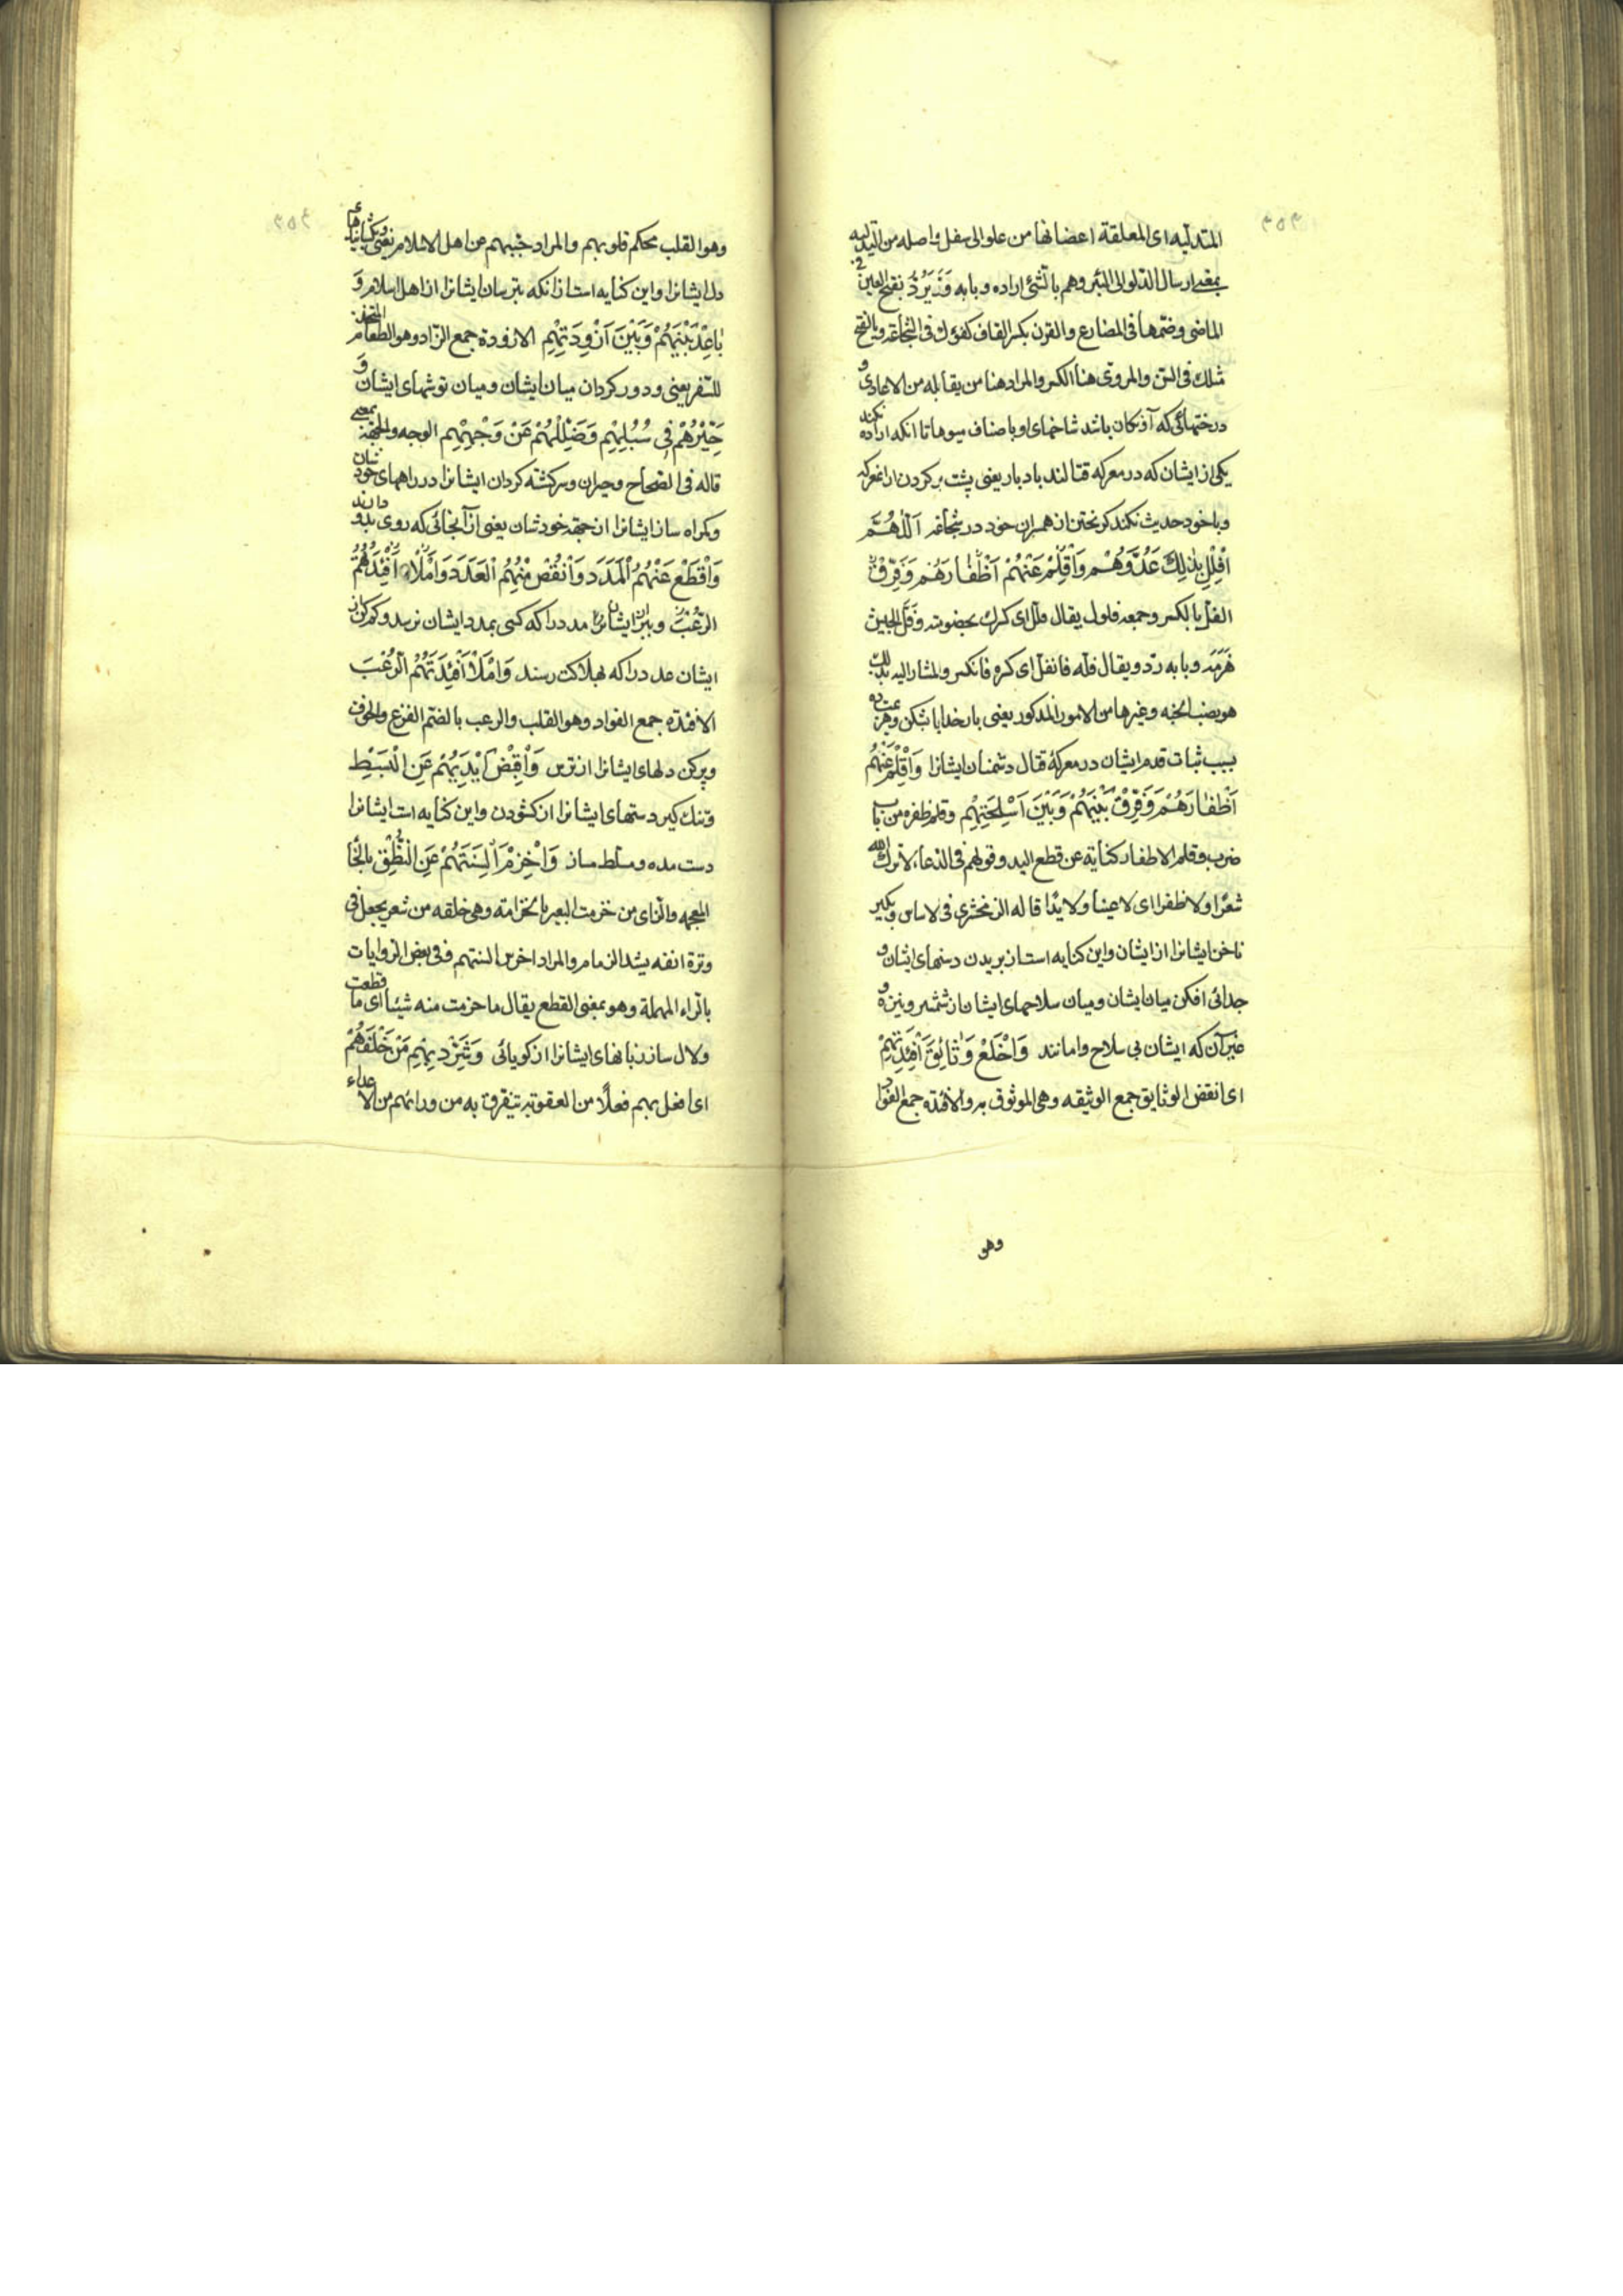 المتدلیه ای المعلقة اعضانها من علو الی سفل واصله من التدلیه
بمعنی ارسال الدلو الی البئر وهم بالشئ اراده وبابه وَزَیَرُدُّ بفتح العین فی
الماضی وضمها فی المضارع والقرن بکسر القاف کفؤك فی الشجاعة وبالفتح
مثلك فی السن والمروی هنا الکسر والمراد هنا من یقابله من الاعادی و
درختهائی که آویزکان باشد شاخهای او باصناف میوها تا انکه اراده نکند
یکی از ایشان که در معرکه قتالند بادبار یعنی پشت بر کردن از معرکه
وبا خود حدیث نکند کریختن از همسران خود در شجاعة اَللّٰهُمَّ
افْلِلْ بِذٰلِكَ عَدُوَّهُمْ وَاَقْلِمْ عَنْهُمْ اَظْفٰارَهُمْ وَفَرِّقْ
الفلّ بالکسر وجمعه فلول یقال فلل ای کسرك بعضویته وفلّ الجیش
هَزَمَهُ وبابه ردّ ویقال فلّه فانفلّ ای کسره فانکسر والمشار الیه بذلك
هو نصب الجنه وغیرها من الامور المذکور یعنی بار خدایا بشکن وهزیمت ده
بسبب ثبات قدم ایشان در معرکهٔ قتال دشمنان ایشانرا وَاَقْلِمْ عَنْهُمْ
اَظْفٰارَهُمْ وَفَرِّقْ بَیْنَهُمْ وَبَیْنَ اَسْلِحَتِهِمْ وقلم ظفره من باب
ضرب وقلم الاظفار کنایة عن قطع الید وقولهم فی الدعاء لاترك الله
شعرًا ولا ظفرا ای لا عینا ولا یدًا قاله الزمخشری فی لاساس وبکیر
ناخن ایشانرا از ایشان واین کنایه است از بریدن دستهای ایشان و
جدائی افکن میان ایشان ومیان سلاحهای ایشان از شمشیر ونیزه و
غیر آن که ایشان بی سلاح وامانند وَاخْلَعْ وَثٰائِقَ اَفْئِدَتِهِمْ
ای انقض الوثایق جمع الوثیقه وهی الموثوق به والافئده جمع الفؤاد
وهو
وهو القلب محکم قلوبهم والمراد خببهم عن اهل الاسلام یعنی وبکشا بندهای
دل ایشانرا واین کنایه است از انکه بترسان ایشانرا از اهل اسلام وَ
بٰاعِدْ بَیْنَهُمْ وَبَیْنَ اَزْوِدَتِهِمْ الازودة جمع الزاد وهو الطعام المتخذ
للسفر یعنی ودور کردان میان ایشان ومیان توشهای ایشان وَ
حَیِّرْهُمْ فی سُبُلِهِمْ وَضَلِّلْهُمْ عَنْ وَجْهِهِمْ الوجه والجهة بمعنی
قاله فی الصحاح وحیران وسرکشته کردان ایشانرا در راههای خودشان
وکمراه ساز ایشانرا از جهة خودشان یعنی از آنجائی که روی بدو دارند
وَاقْطَعْ عَنْهُمُ الْمَدَدَ وَانْقُصْ مِنْهُمُ الْعَدَدَ وَامْلَأْ اَفْئِدَتَهُمُ
الرُّعْبَ وببر از ایشان مدد را که کسی بمدد ایشان نرسد وکم کن از
ایشان عدد را که بهلاکت رسند وَامْلَأْ اَفْئِدَتَهُمُ الرُّعْبَ
الافئدة جمع الفواد وهو القلب والرعب بالضم الفزع والخوف
وپر کن دلهای ایشانرا از ترس وَاقْبِضْ اَیْدِیَهُمْ عَنِ الْبَسْطِ
وتنك کیر دستهای ایشانرا از کشودن واین کنایه است ایشانرا
دست مده ومسلط مساز وَاخْزِمْ اَلْسِنَتَهُمْ عَنِ النُّطْقِ بالخا
المعجمه والزای من خزمت البعیر بالخزامة وهی حلقه من شعر یجعل فی
وترة انفه یشد الزمام والمراد اخرس السنتهم وفی بعض الروایات
بالراء المهملة وهو بمعنی القطع یقال ما خرمت منه شیئا ای ما قطعت
ولال ساز زبانهای ایشانرا از کویائی وَشَرِّدْ بِهِمْ مَنْ خَلْفَهُمْ
ای افعل بهم فعلًا من العقوبة یتفرق به من ورائهم من الاعداء